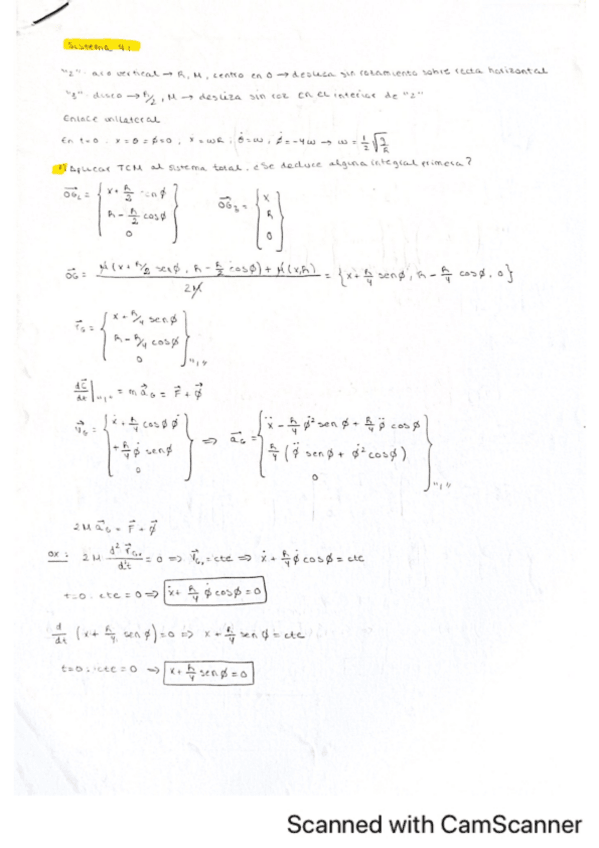 Sistema 4:
"2": aro vertical → R, M, centro en O → desliza sin rozamiento sobre recta horizontal
"3": disco → R/2, M → desliza sin roz en el interior de "2"
Enlace unilateral
En t=0: x=θ=ϕ=0, ẋ=ωR, θ̇=ω, ϕ̇=-4ω → ω = 1/2 √(g/R)
Aplicar TCM al sistema total. ¿Se deduce alguna integral primera?
OG₂ = { x + R/2 senϕ, R - R/2 cosϕ, 0 } OG₃ = { x, R, 0 }
OG = M(x + R/2 senϕ, R - R/2 cosϕ) + M(x,R) / 2M = { x + R/4 senϕ, R - R/4 cosϕ, 0 }
r_G = { x + R/4 senϕ, R - R/4 cosϕ, 0 } "1"
dC/dt |"1" = m a_G = F + Φ
v_G = { ẋ + R/4 cosϕ ϕ̇, + R/4 ϕ̇ senϕ, 0 } ⇒ a_G = { ẍ - R/4 ϕ̇² senϕ + R/4 ϕ̈ cosϕ, R/4 (ϕ̈ senϕ + ϕ̇² cosϕ), 0 } "1"
2M a_G = F + Φ
OX: 2M d² r_G / d²t = 0 ⇒ v_G = cte ⇒ ẋ + R/4 ϕ̇ cosϕ = cte
t=0: cte = 0 ⇒ ẋ + R/4 ϕ̇ cosϕ = 0
d/dt (x + R/4 senϕ) = 0 ⇒ x + R/4 senϕ = cte
t=0: cte = 0 ⇒ x + R/4 senϕ = 0
Scanned with CamScanner